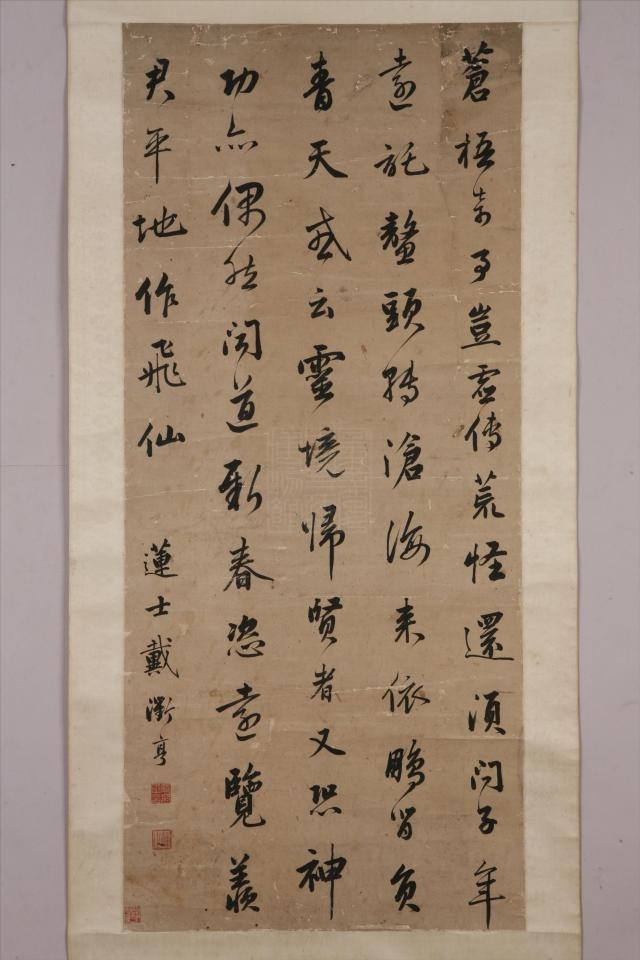 蒼梧奇事豈虛傳荒怪還須問子年
遠託鼇頭轉滄海来依鵬背負
青天或云靈境歸賢者又恐神
功亦偶然聞道新春恣遠覽羨
君平地作飛仙
蓮士戴衢亨